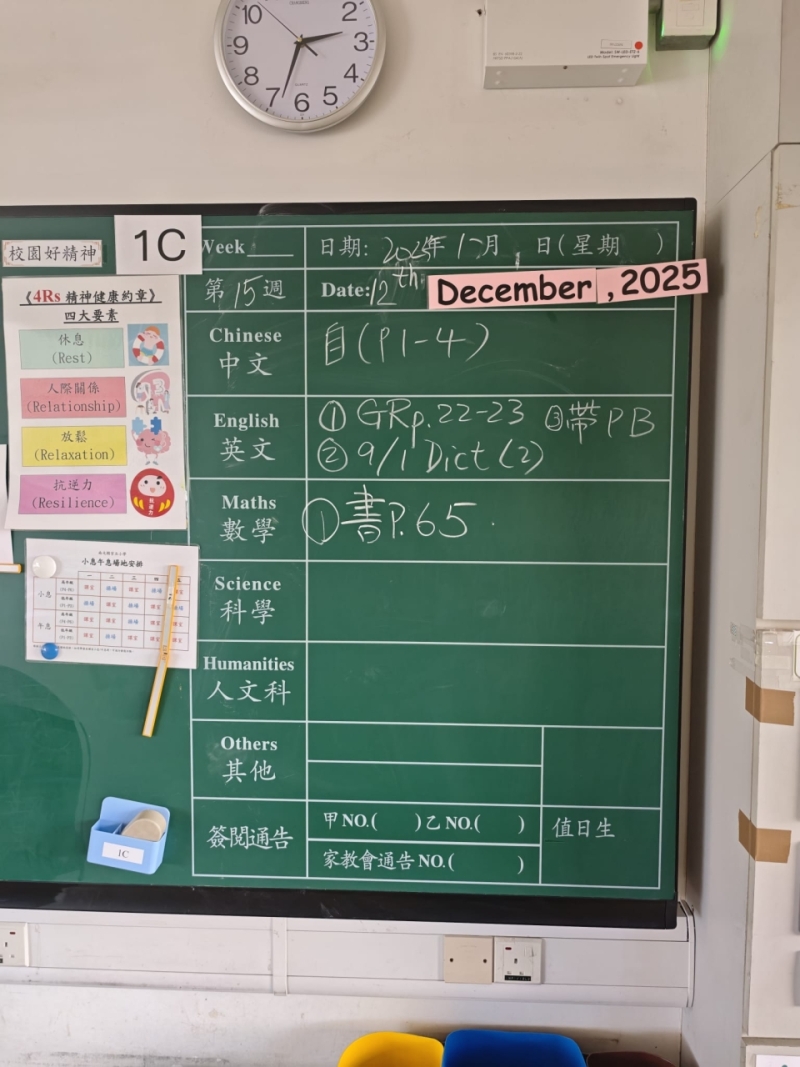 10
2
9
3
8
4
7
6
5
校園好精神
1C
Week
日期: 2025年12月 日(星期 )
第15週
Date: 12th December , 2025
《4Rs 精神健康約章》
四大要素
休息
(Rest)
人際關係
(Relationship)
放鬆
(Relaxation)
抗逆力
(Resilience)
Chinese
中文
自(P1-4)
English
英文
① GRp.22-23 ③帶PB
② 9/1 Dict (2)
Maths
數學
①書P.65
小息午息場地安排
一 二 三 四 五
小息
午息
Science
科學
Humanities
人文科
Others
其他
1C
簽閱通告
甲NO.( )乙NO.( )
家教會通告NO.( )
值日生